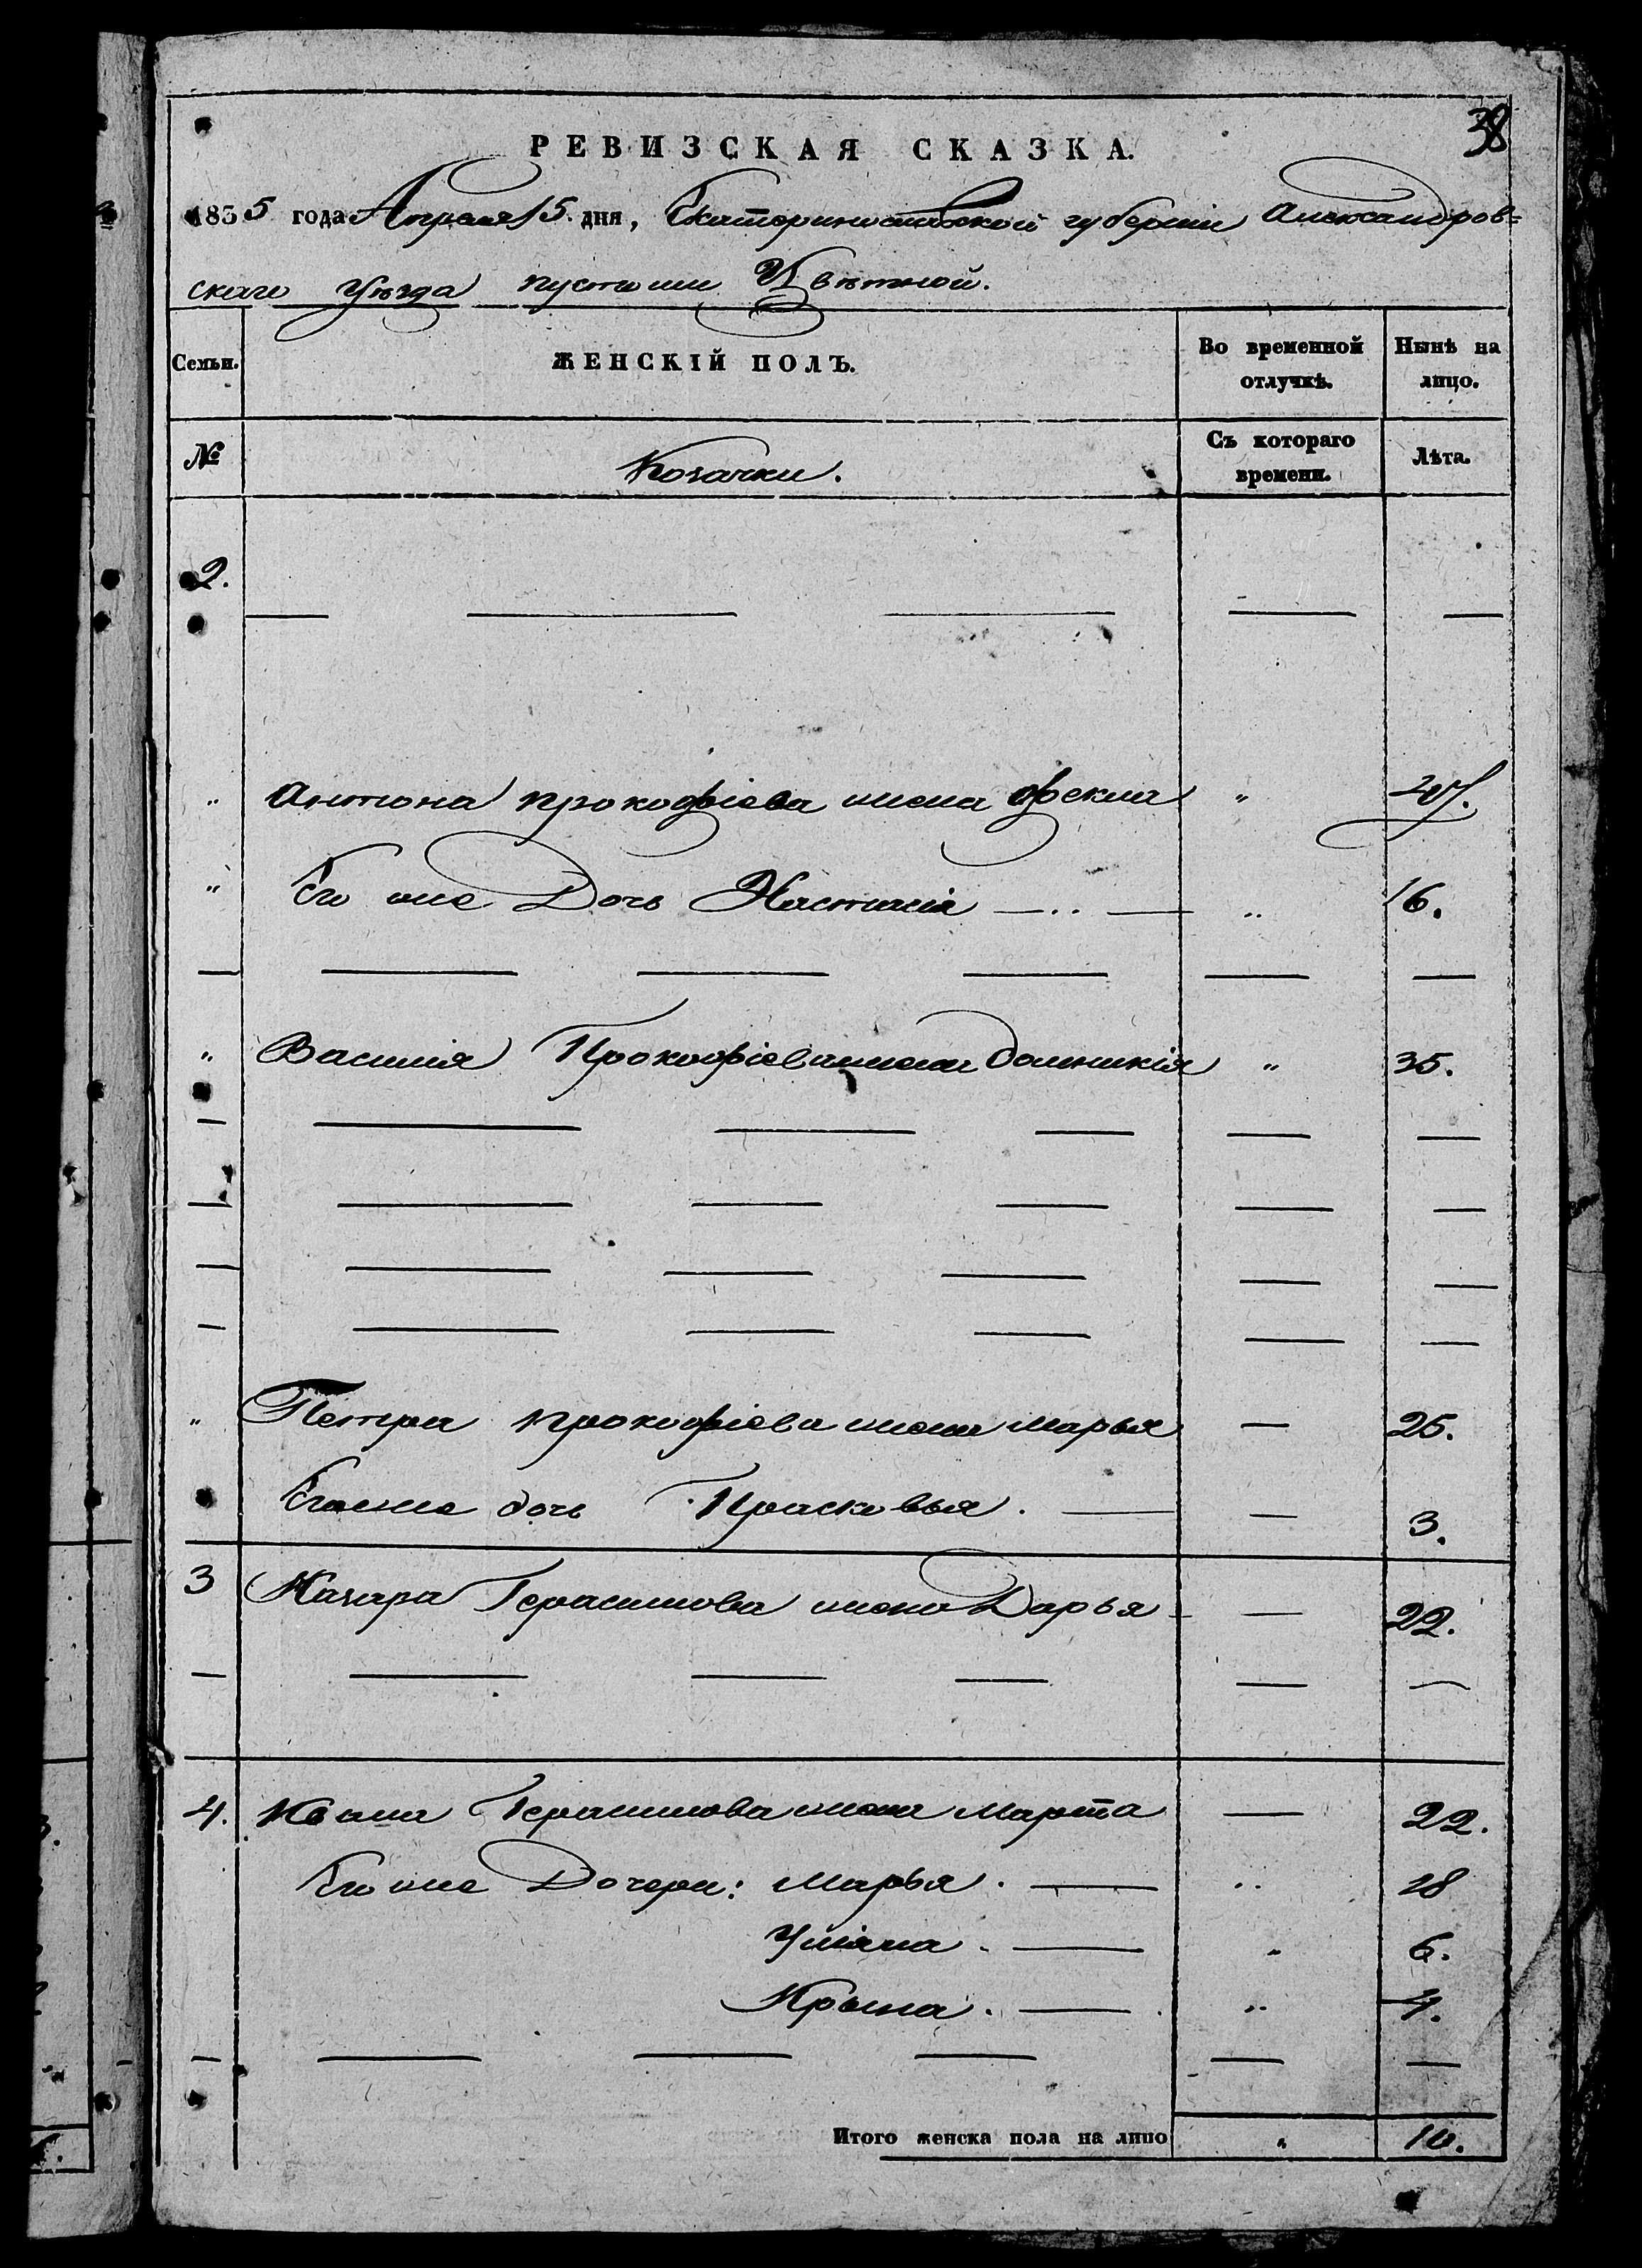 38
РЕВИЗСКАЯ СКАЗКА.
1835 года Апреля 15 дня, Екатеринославской губерніи Александров=
скаго Уѣзда пустоши Цвѣтной.
Семьи. ЖЕНСКІЙ ПОЛЪ. Во временной отлучкѣ. Нынѣ на лицо.
№ Козачки. Съ котораго времени. Лѣта.
2.
" Антона прокофіева жена фекла "
" Его же Дочь Настасія — .. — .. 16.
" Василія Прокофіева жена домникія " 35.
" Петра прокофіева жена марья — 25.
Его же дочь Прасковья. — — 3.
3 Назара Герасимова жена Дарья — — 22.
4. Ивана Герасимова жена Марта — 22.
Его же Дочери: Марья. — .. 18
Уліяна. — " 6.
Ирына. — .. 4.
Итого женска пола на лицо " 10.